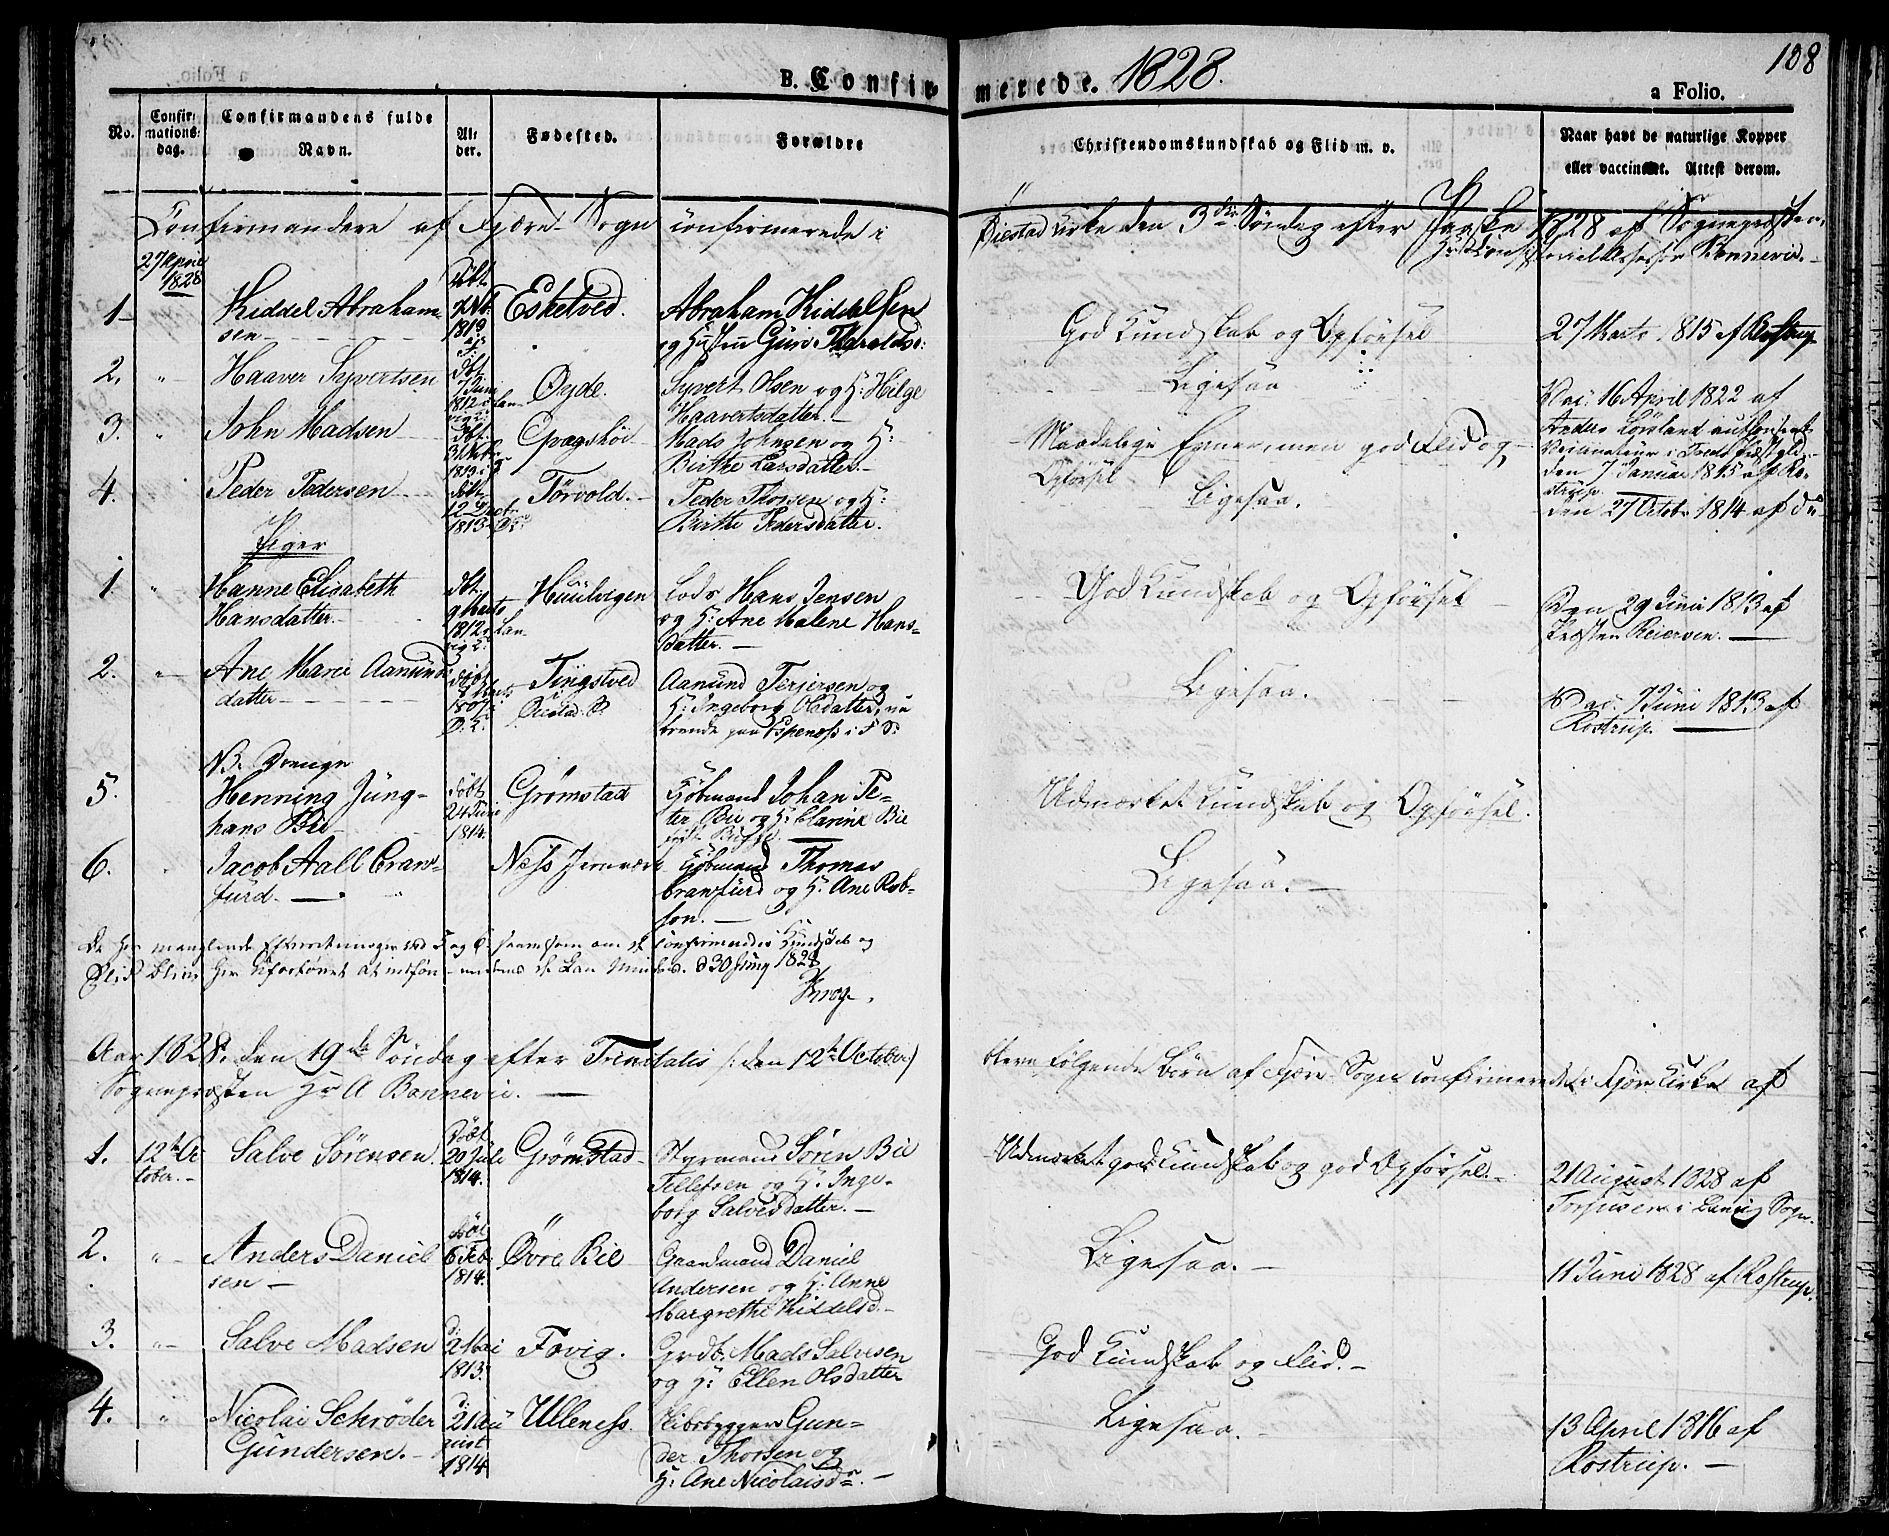 B. Confir
merede. 1828.
108
a Folio.
No.
Confir-
mations-
dag.
Confirmandens fulde
Navn.
Al-
der.
Fødested.
Forældre
Christendomskundskab og Flid m. v.
Naar havt de naturlige Kopper
eller vaccineret. Attest derom.
Confirmandere af Fjære Sogn confirmerede i
Øiestad Kirke den 3die Søndag efter Paaske 1828 af Sognepræsten
Bonnevie.
27 April
1828
1 Kiddel Abraham-
sen
Døbt
1812
Esketved.
Abraham Kiddelsen
og Hustru Guri Tharaldsd:
God Kundskab og Opførsel
27 Marts 1815 af Rostrup
2. Haaver Syvertsen
Døbt
7 Juni
1812
Øyde.
Syvert Olsen og H: Hilge
Haavertsdatter.
Ligesaa
Vac: 16 April 1822 af
3. John Madsen
Døbt
Mads Johnsen og H:
Birthe Larsdatter.
Maadelige Evner, men god Flid og
Opførsel
den 7 Januar 1815 af Ro-
strup.
4. Peder Pedersen
Døbt
1813
Törvold.
Peder Thorsen og H:
Birthe Pedersdatter.
Ligesaa.
den 27 Octobr 1814 af do
Piger
1 Hanne Elisabeth
Hansdatter.
Døbt
9 Marts
1812
Huulvigen
Lods Hans Jensen
og H: Ane Malene Hans-
datter.
God Kundskab og Opførsel
Den 29 Juni 1813 af
Præsten Reiersen.
2. Ane Marie Aanund-
datter
Døbt
Tingstved
Øiestad S.
Aanund Terjersen og
H: Ingeborg Olsdatter, væ-
rende paa Espenæs i F S:
Ligesaa.
Vac: 7 Juni 1813 af
Rostrup.
NB. Drenge
5. Henning Jung-
hans Bie
Døbt
24 Juni
1814.
Grømstad
Kjøbmand Johan Pe-
ter Bie og H: Clarine Bie
Udmærket Kundskab og Opførsel.
6. Jacob Aall Craw-
furd.
Næss Jernværk
Kjøbmand Thomas
Crawfurd og H: Ane Rob-
son.
Ligesaa.
De her manglende Efterretninger
Flid blive her
1828
Krog.
Aar 1828. den 19de Søndag efter Trinitatis /: den 12te October/
bleve følgende Børn af Fjære Sogn confirmerede i Fjære Kirke af
Sognepræsten Hr A Bonnevie.
1. 12te Oc-
tober.
Salve Sörensen.
Døbt
20 Juli
1814.
Grømstad
Styrmand Sören Bie
Tellefsen og H: Inge-
borg Salvesdatter.
Udmærket god Kundskab og god Opførsel.
21 August 1828 af
i Landvig Sogn.
2. Anders Daniel-
sen
Døbt
6 Feb.
1814.
Övre Bie
Gaardmand Daniel
Andersen og H: Anne
Margrethe Kiddelsd.
Ligesaa.
11 Juni 1828 af Rostrup.
3. Salve Madsen
D:
2 Mai
1813.
Fævig.
Grdb. Mads Salvesen
og H: Ellen Olsdatter
God Kundskab og Flid.
4. Nicolai Schröder
Gundersen.
D:
21 Au-
gust
1814
Ulleness.
Skibsbygger Gun-
der Thorsen og
H: Ane Nicolaisdr.
Ligesaa.
13 April 1816 af
Rostrup.